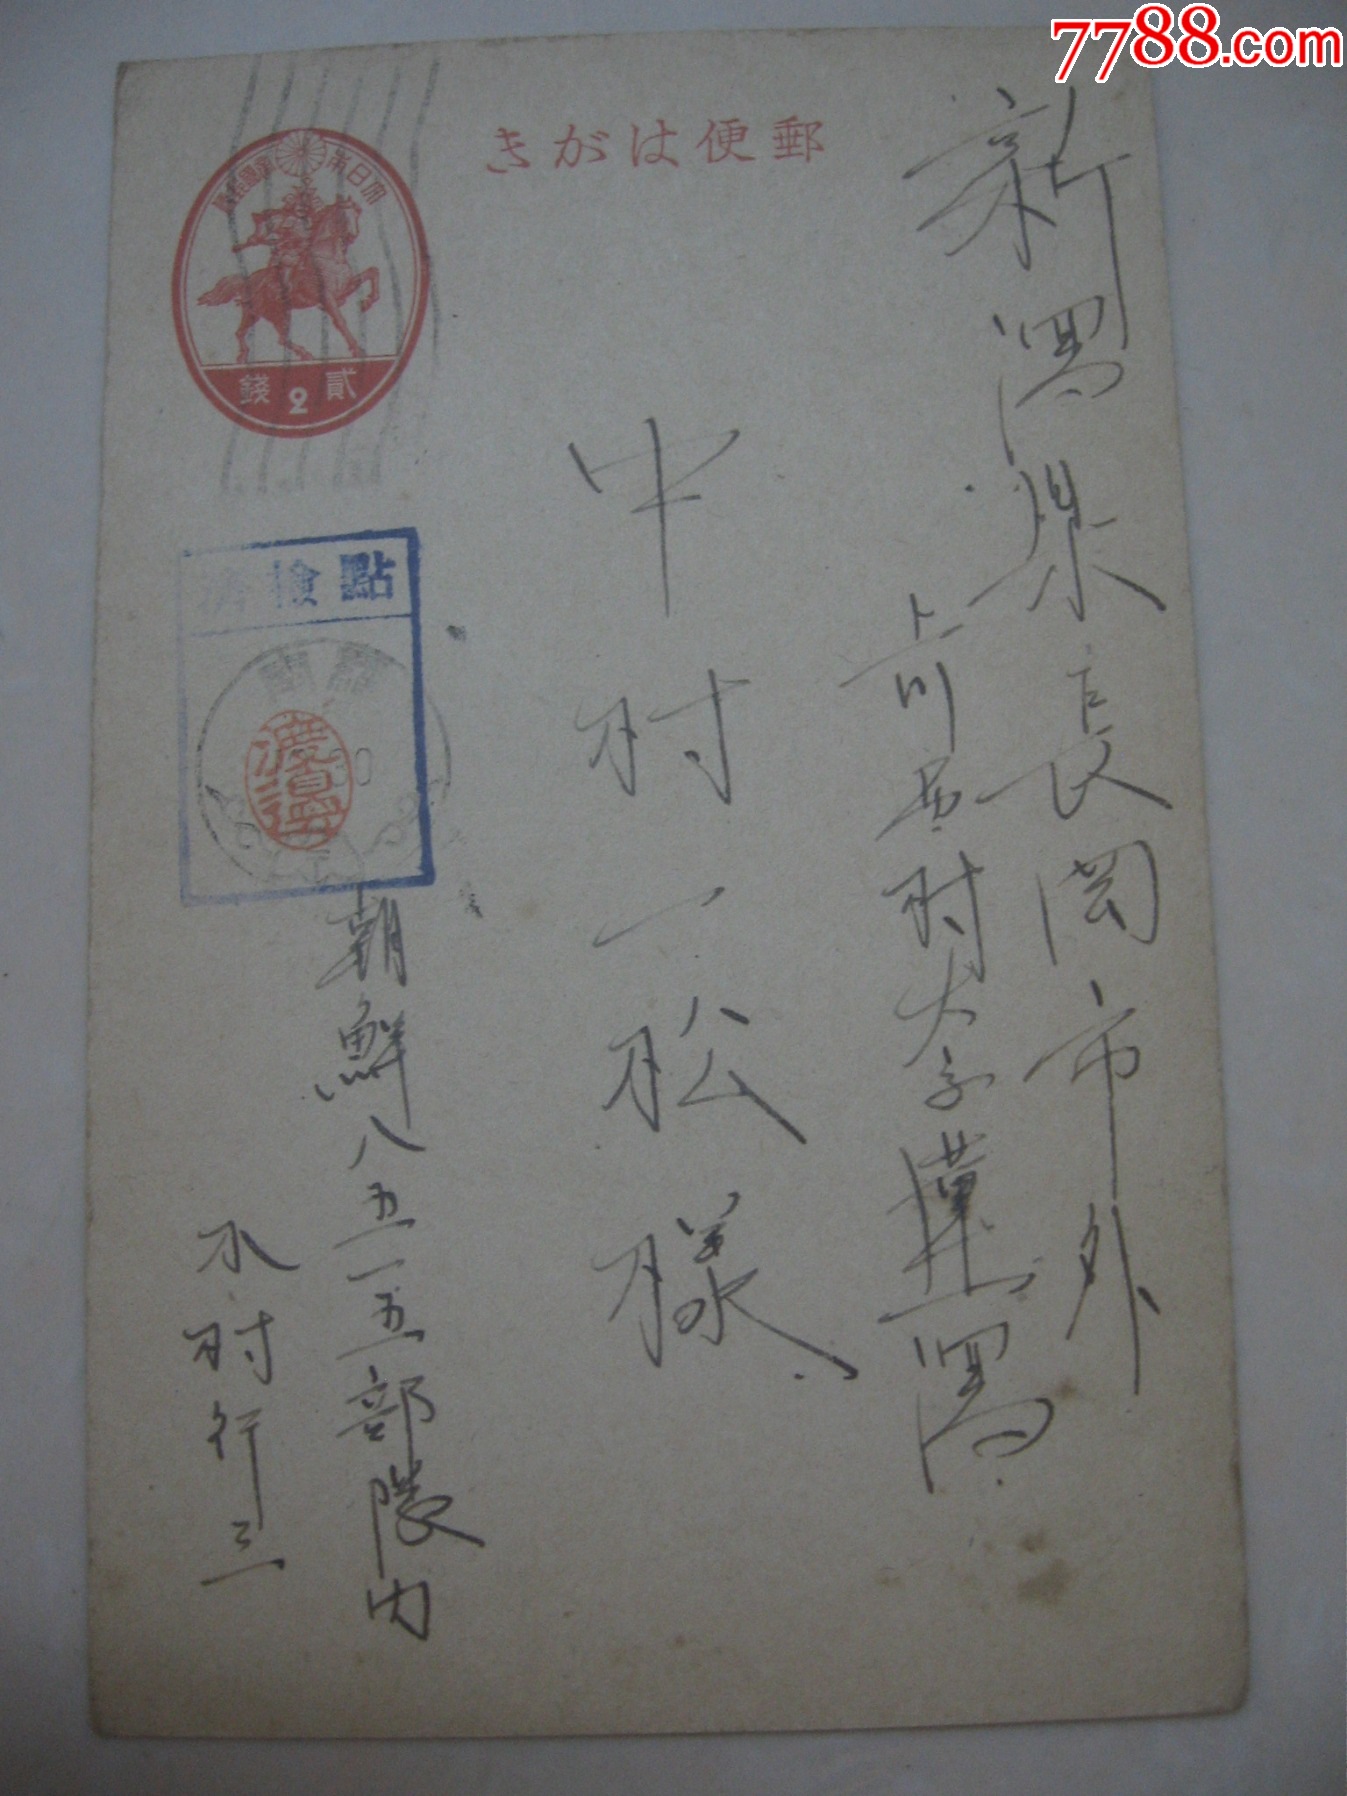 7788.com
郵便はがき
大日本帝國郵便
貳2錢
新潟県長岡市外
上川西村大字蓮潟
中村一松様
點檢濟
渡邉
朝鮮八五一五部隊内
木村行三